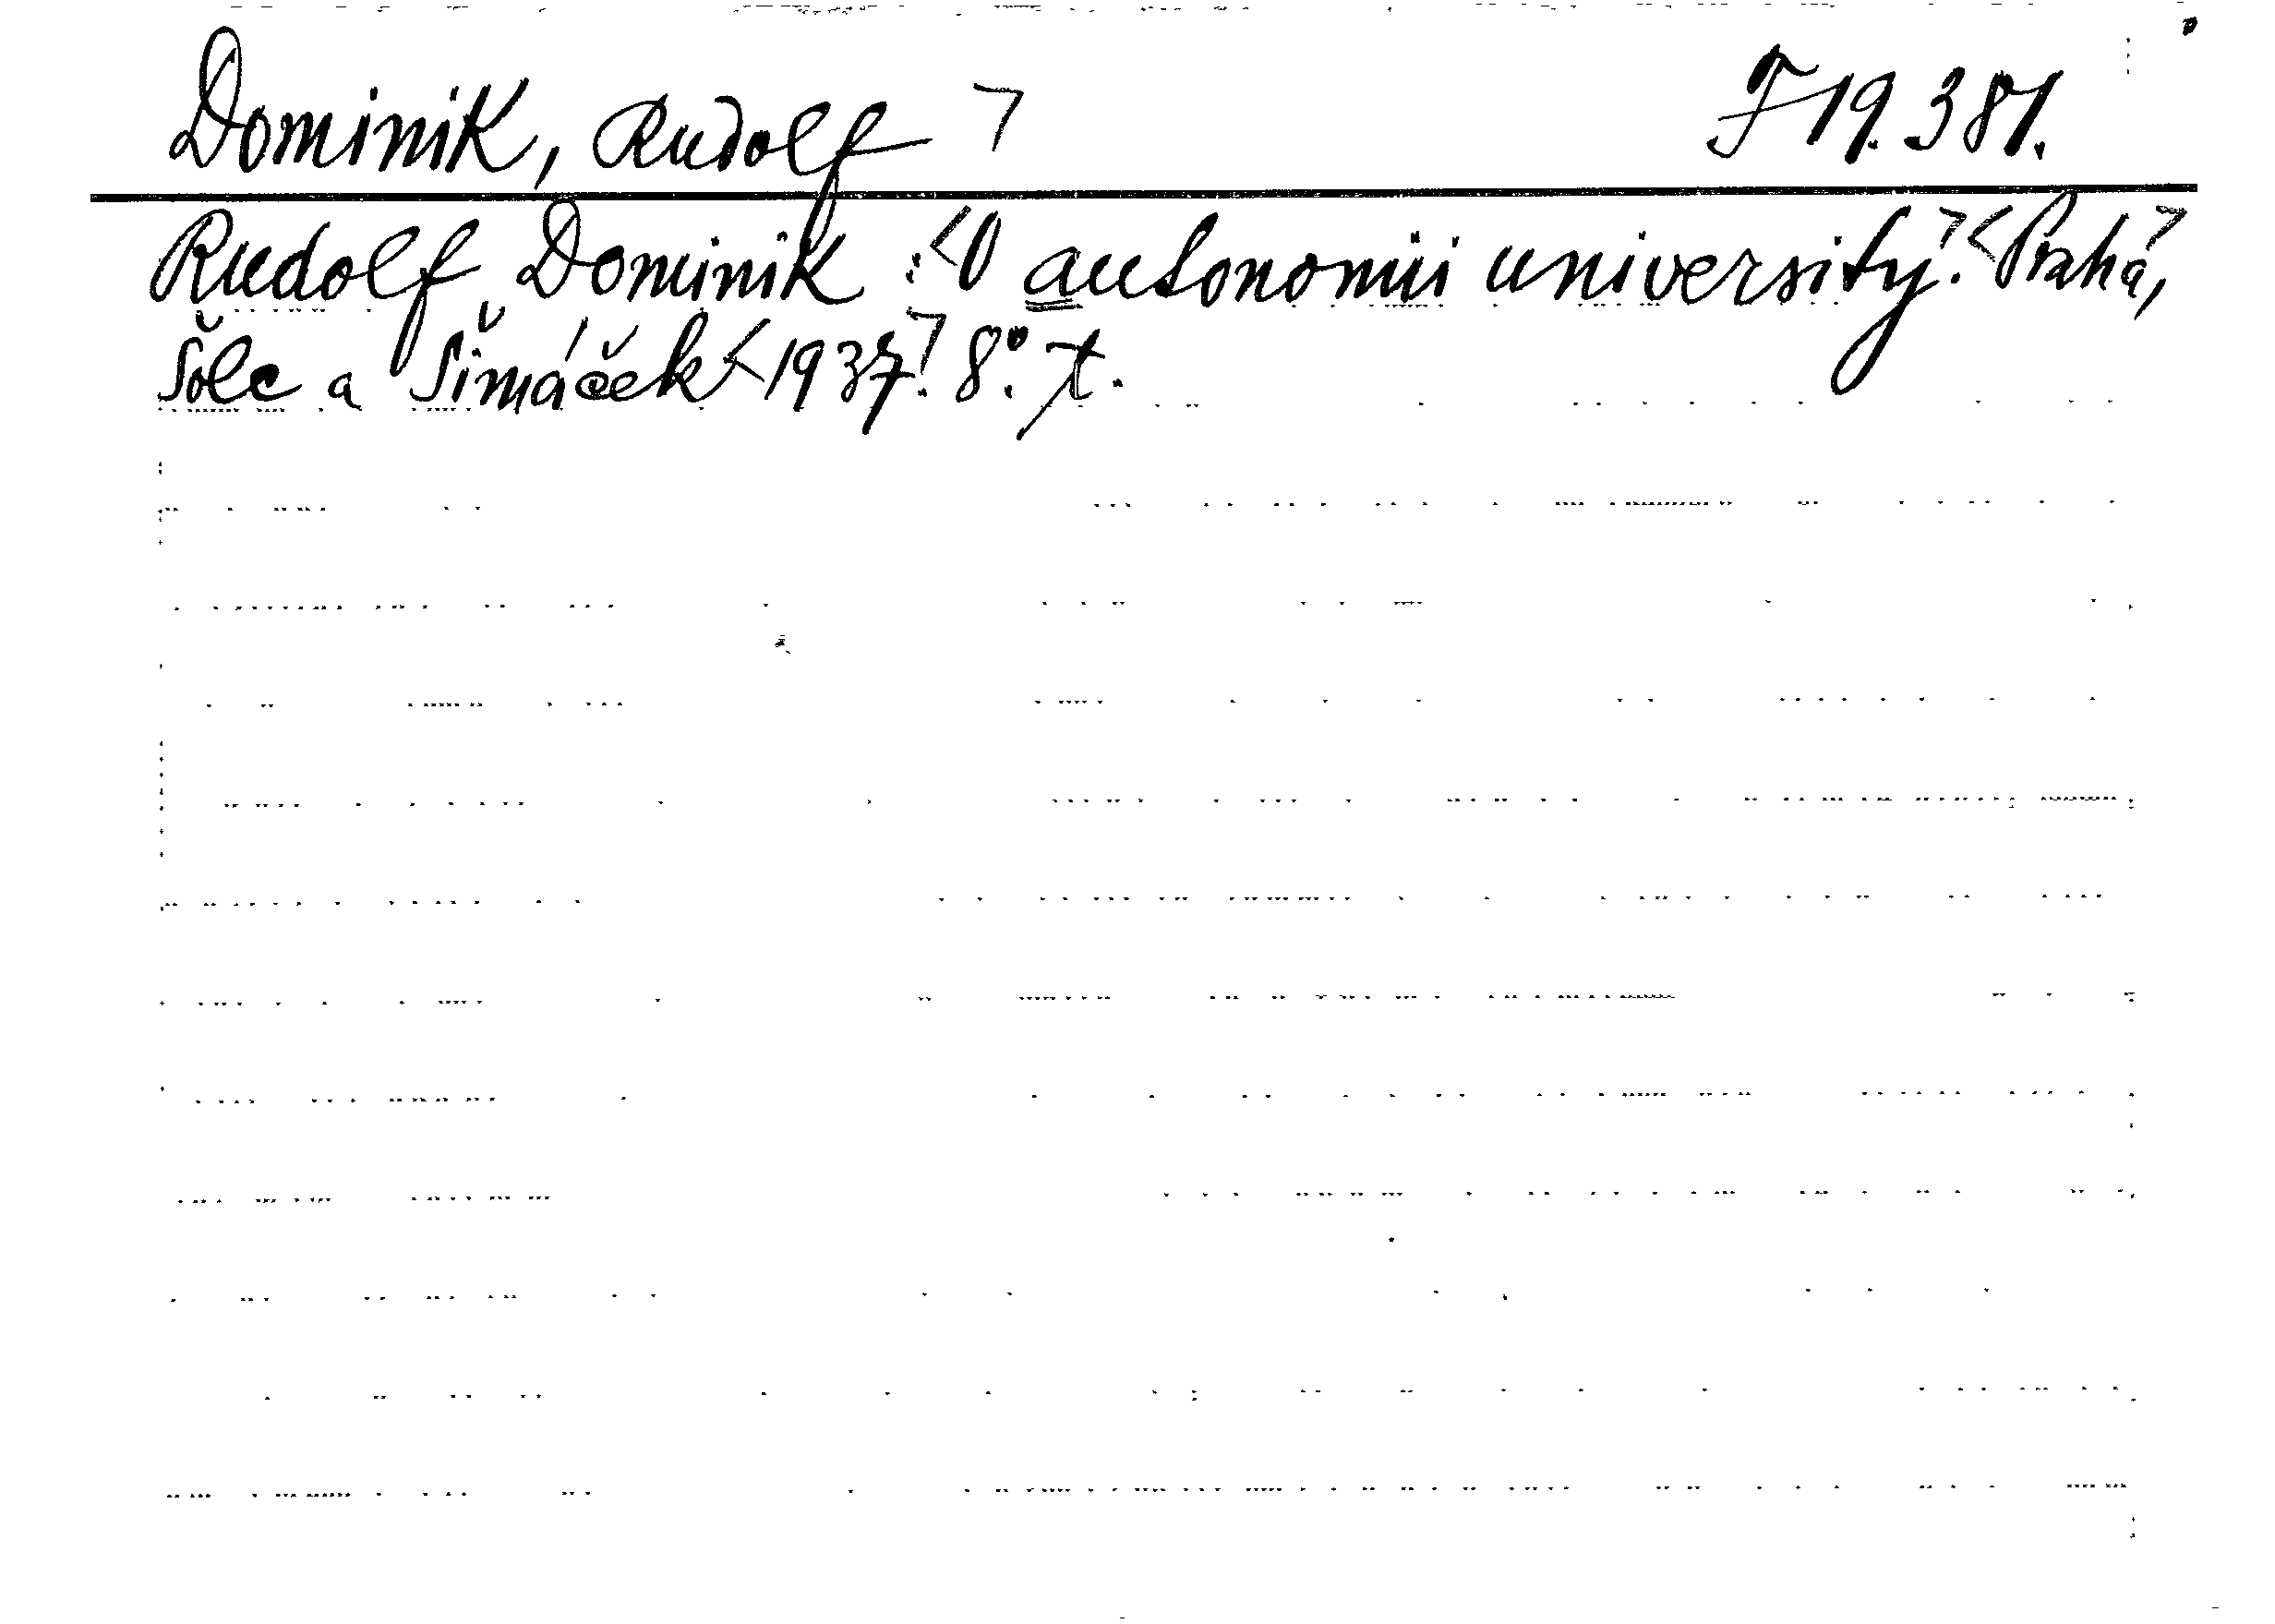 Dominik, Rudolf ㄱ J 19.381.
Rudolf Dominik : <O autonomii university.> <Praha>,
Šolc a Šimáček <1937>. 8°. t.